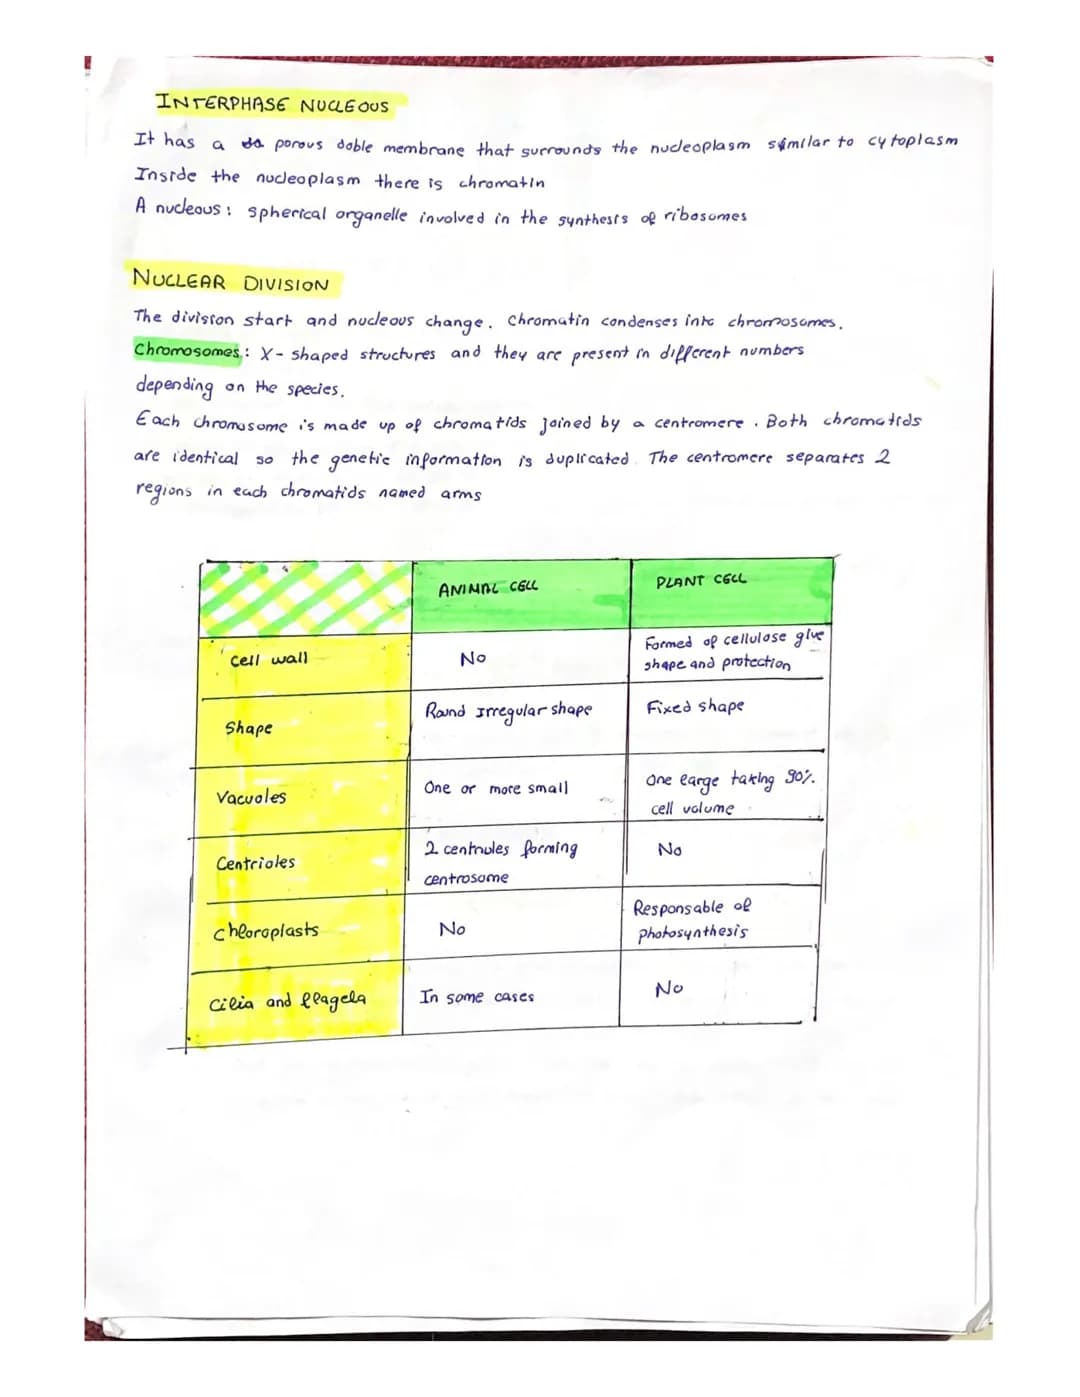 INTERPHASE NUCLEOUS
It has a porous doble membrane that surrounds the nucleoplasm similar to cytoplasm
Inside the nucleoplasm there is chromatin
A nucleous: spherical organelle involved in the synthesis of ribosomes
NUCLEAR DIVISION
The division start and nucleous change. Chromatin condenses into chromosomes.
Chromosomes: X- shaped structures and they are present in different numbers
depending on the species.
Each chromosome is made up of chromatids joined by a centromere. Both chromatids
are identical so the genetic information is duplicated. The centromere separates 2
regions in each chromatids named arms
ANIMAL CELL PLANT CELL
Cell wall No Formed of cellulose give
shape and protection
Shape Round Irregular shape Fixed shape
Vacuoles One or more small One large taking 90%
cell volume
Centrioles 2 centrioles forming No
centrosome
Chloroplasts No Responsable of
photosynthesis
Cilia and flagela In some cases No